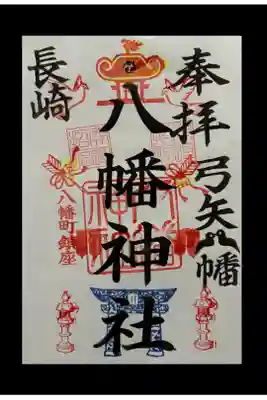 奉拝
弓矢八幡
八幡神社
長崎
八幡町鎮座